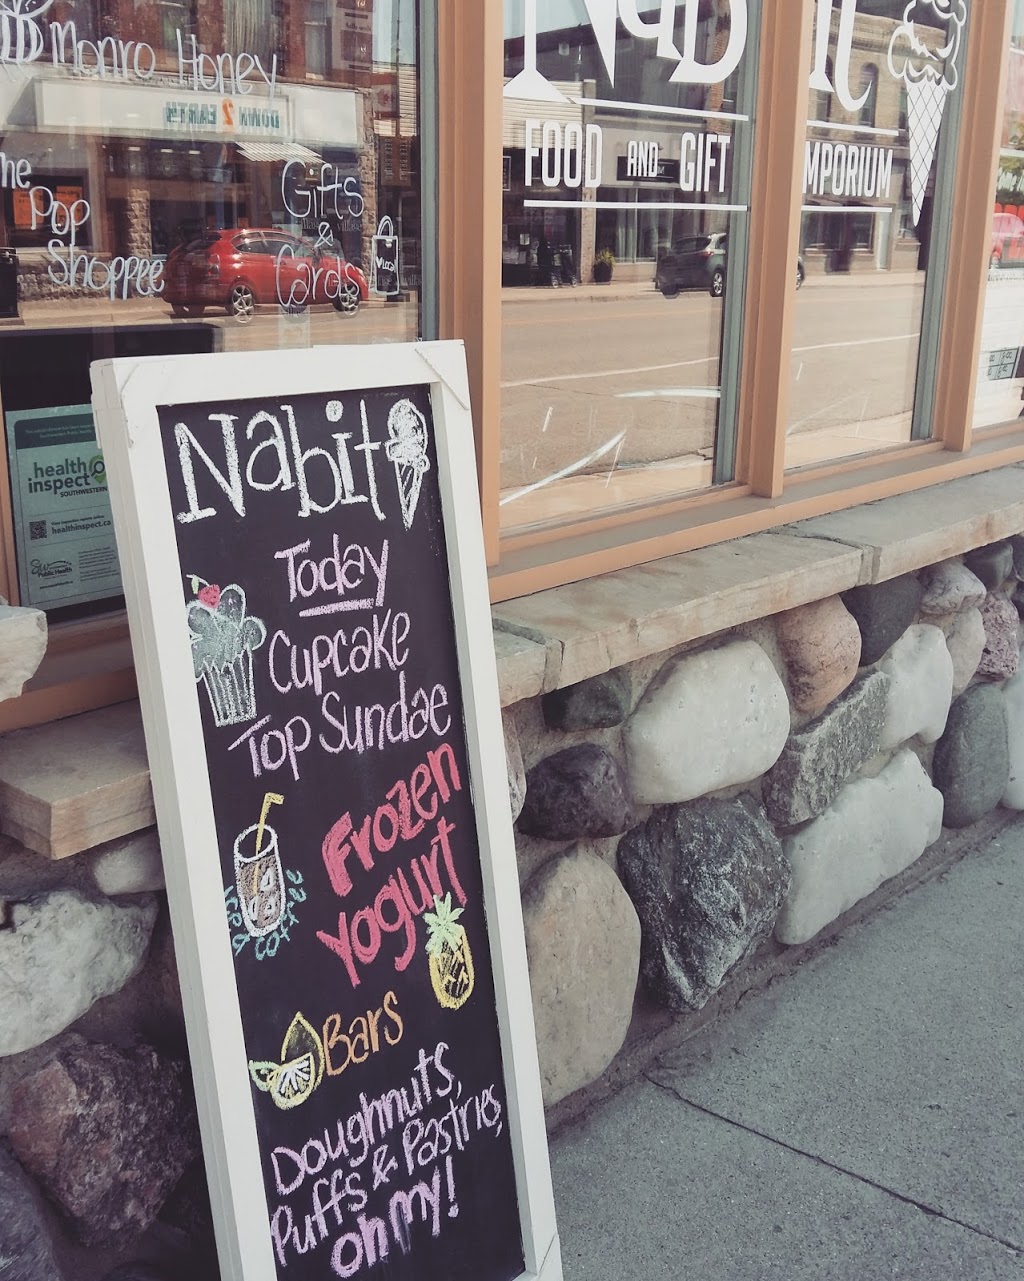 Monro Honey
DOWN 2 EARTH
Pop
Shoppee
Gifts
&
Cards
LOCAL
NaB It
FOOD AND GIFT EMPORIUM
health
inspect
SOUTHWESTERN
healthinspect.ca
Public Health
Nabit
Today
Cupcake
Top Sundae
Frozen
Yogurt
Iced
Coffee
Bars
Doughnuts,
Puffs & Pastries,
oh my!